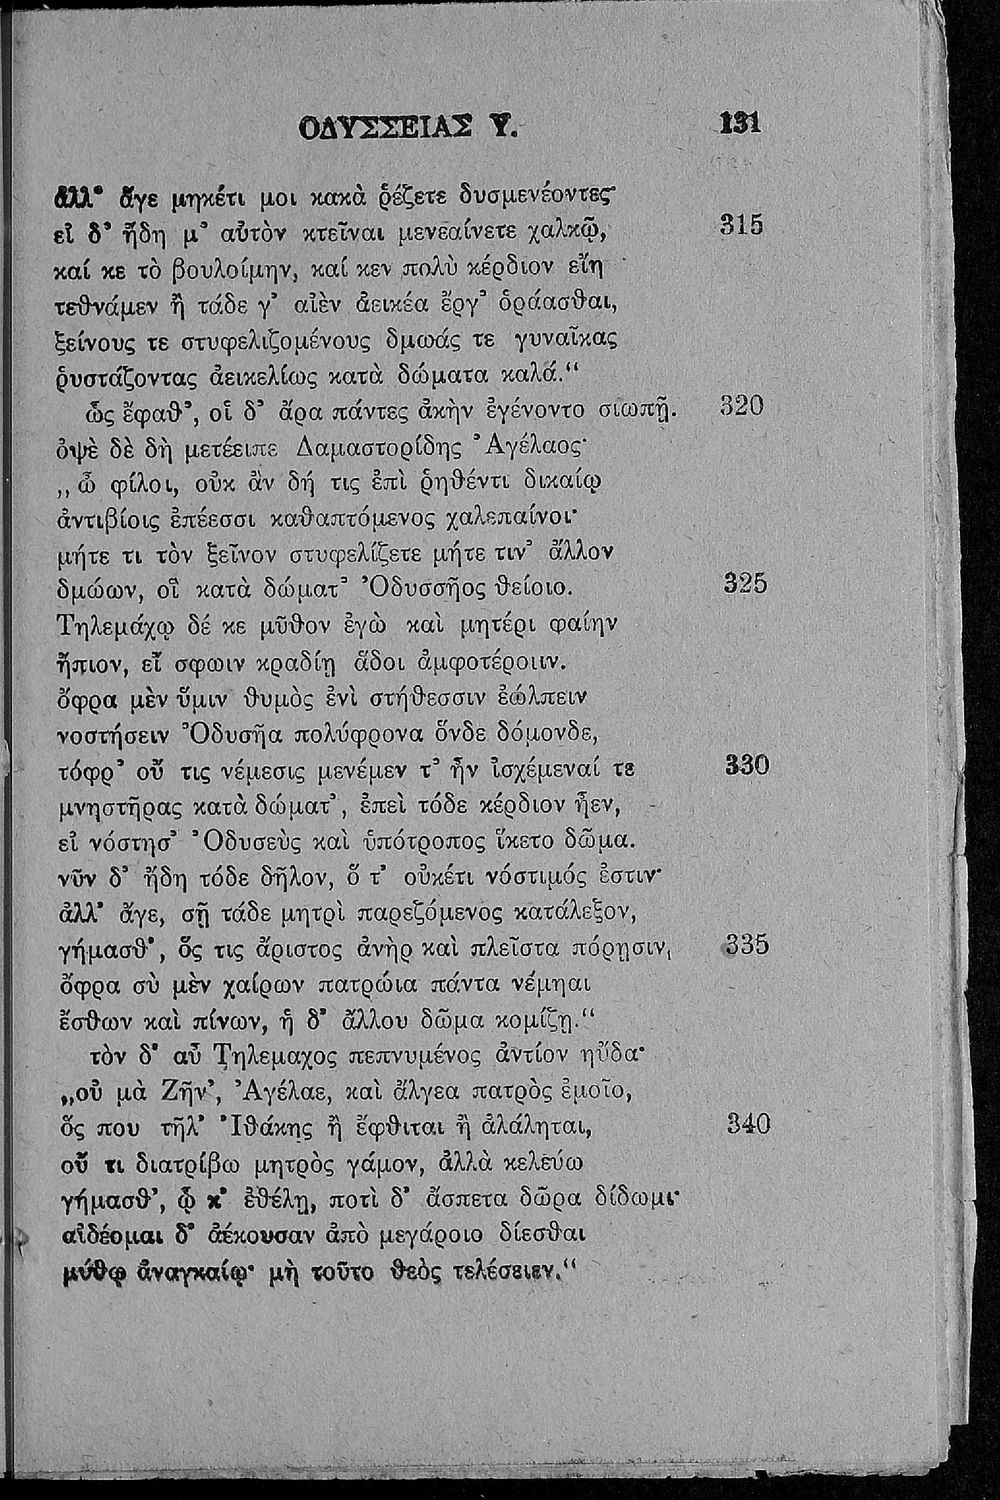 ΟΔΥΣΣΕΙΑΣ Υ. 131
ἀλλ᾽ ἄγε μηκέτι μοι κακὰ ῥέζετε δυσμενέοντες·
εἰ δ᾽ ἤδη μ᾽ αὐτὸν κτεῖναι μενεαίνετε χαλκῷ, 315
καί κε τὸ βουλοίμην, καί κεν πολὺ κέρδιον εἴη
τεθνάμεν ἢ τάδε γ᾽ αἰὲν ἀεικέα ἔργ᾽ ὁράασθαι,
ξείνους τε στυφελιζομένους δμωάς τε γυναῖκας
ῥυστάζοντας ἀεικελίως κατὰ δώματα καλά.“
ὣς ἔφαθ᾽, οἱ δ᾽ ἄρα πάντες ἀκὴν ἐγένοντο σιωπῇ. 320
ὀψὲ δὲ δὴ μετέειπε Δαμαστορίδης Ἀγέλαος·
„ὦ φίλοι, οὐκ ἂν δή τις ἐπὶ ῥηθέντι δικαίῳ
ἀντιβίοις ἐπέεσσι καθαπτόμενος χαλεπαίνοι·
μήτε τι τὸν ξεῖνον στυφελίζετε μήτε τιν᾽ ἄλλον
δμώων, οἳ κατὰ δώματ᾽ Ὀδυσσῆος θείοιο. 325
Τηλεμάχῳ δέ κε μῦθον ἐγὼ καὶ μητέρι φαίην
ἤπιον, εἴ σφωιν κραδίῃ ἅδοι ἀμφοτέροιιν.
ὄφρα μὲν ὕμιν θυμὸς ἐνὶ στήθεσσιν ἐώλπειν
νοστήσειν Ὀδυσῆα πολύφρονα ὅνδε δόμονδε,
τόφρ᾽ οὔ τις νέμεσις μενέμεν τ᾽ ἦν ἰσχέμεναί τε 330
μνηστῆρας κατὰ δώματ᾽, ἐπεὶ τόδε κέρδιον ἦεν,
εἰ νόστησ᾽ Ὀδυσεὺς καὶ ὑπότροπος ἵκετο δῶμα.
νῦν δ᾽ ἤδη τόδε δῆλον, ὅ τ᾽ οὐκέτι νόστιμός ἐστιν·
ἀλλ᾽ ἄγε, σῇ τάδε μητρὶ παρεζόμενος κατάλεξον,
γήμασθ᾽, ὅς τις ἄριστος ἀνὴρ καὶ πλεῖστα πόρῃσιν, 335
ὄφρα σὺ μὲν χαίρων πατρώια πάντα νέμηαι
ἔσθων καὶ πίνων, ἡ δ᾽ ἄλλου δῶμα κομίζῃ.“
τὸν δ᾽ αὖ Τηλεμαχος πεπνυμένος ἀντίον ηὔδα·
„οὐ μὰ Ζῆν᾽, Ἀγέλαε, καὶ ἄλγεα πατρὸς ἐμοῖο,
ὅς που τῆλ᾽ Ἰθάκης ἢ ἔφθιται ἢ ἀλάληται, 340
οὔ τι διατρίβω μητρὸς γάμον, ἀλλὰ κελεύω
γήμασθ᾽, ᾧ κ᾽ ἐθέλῃ, ποτὶ δ᾽ ἄσπετα δῶρα δίδωμι·
αἰδέομαι δ᾽ ἀέκουσαν ἀπὸ μεγάροιο δίεσθαι
μύθῳ ἀναγκαίῳ· μὴ τοῦτο θεὸς τελέσειεν.“